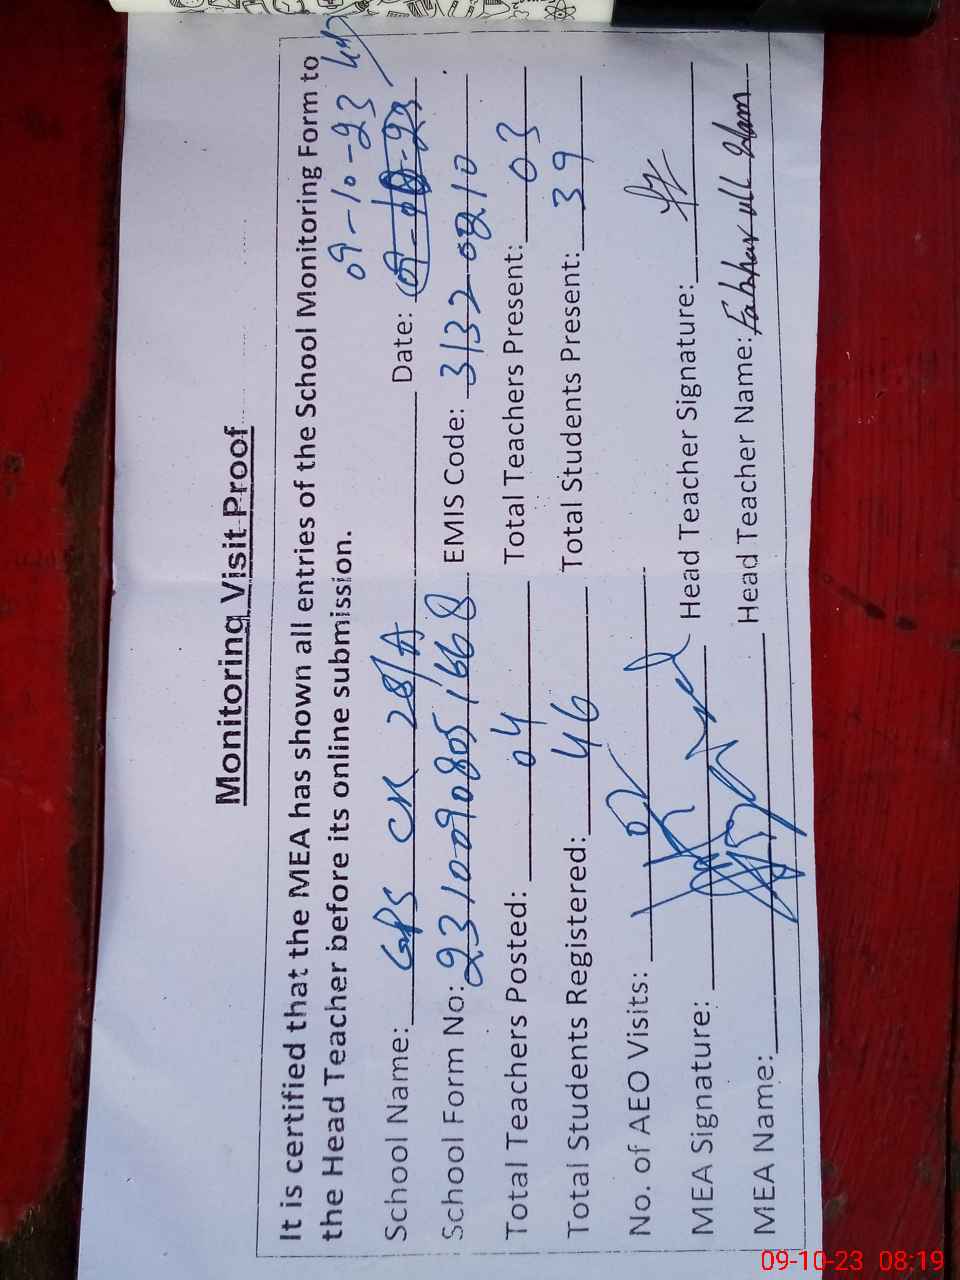 Monitoring Visit Proof
It is certified that the MEA has shown all entries of the School Monitoring Form to
the Head Teacher before its online submission.
09-10-23
School Name: GPS CK 28/A Date:
School Form No: 231009080516668 EMIS Code: 31320210
Total Teachers Posted: 04 Total Teachers Present: 03
Total Students Registered: 46 Total Students Present: 39
No. of AEO Visits: 02
MEA Signature: Head Teacher Signature:
MEA Name: Head Teacher Name:
09-10-23 08:19